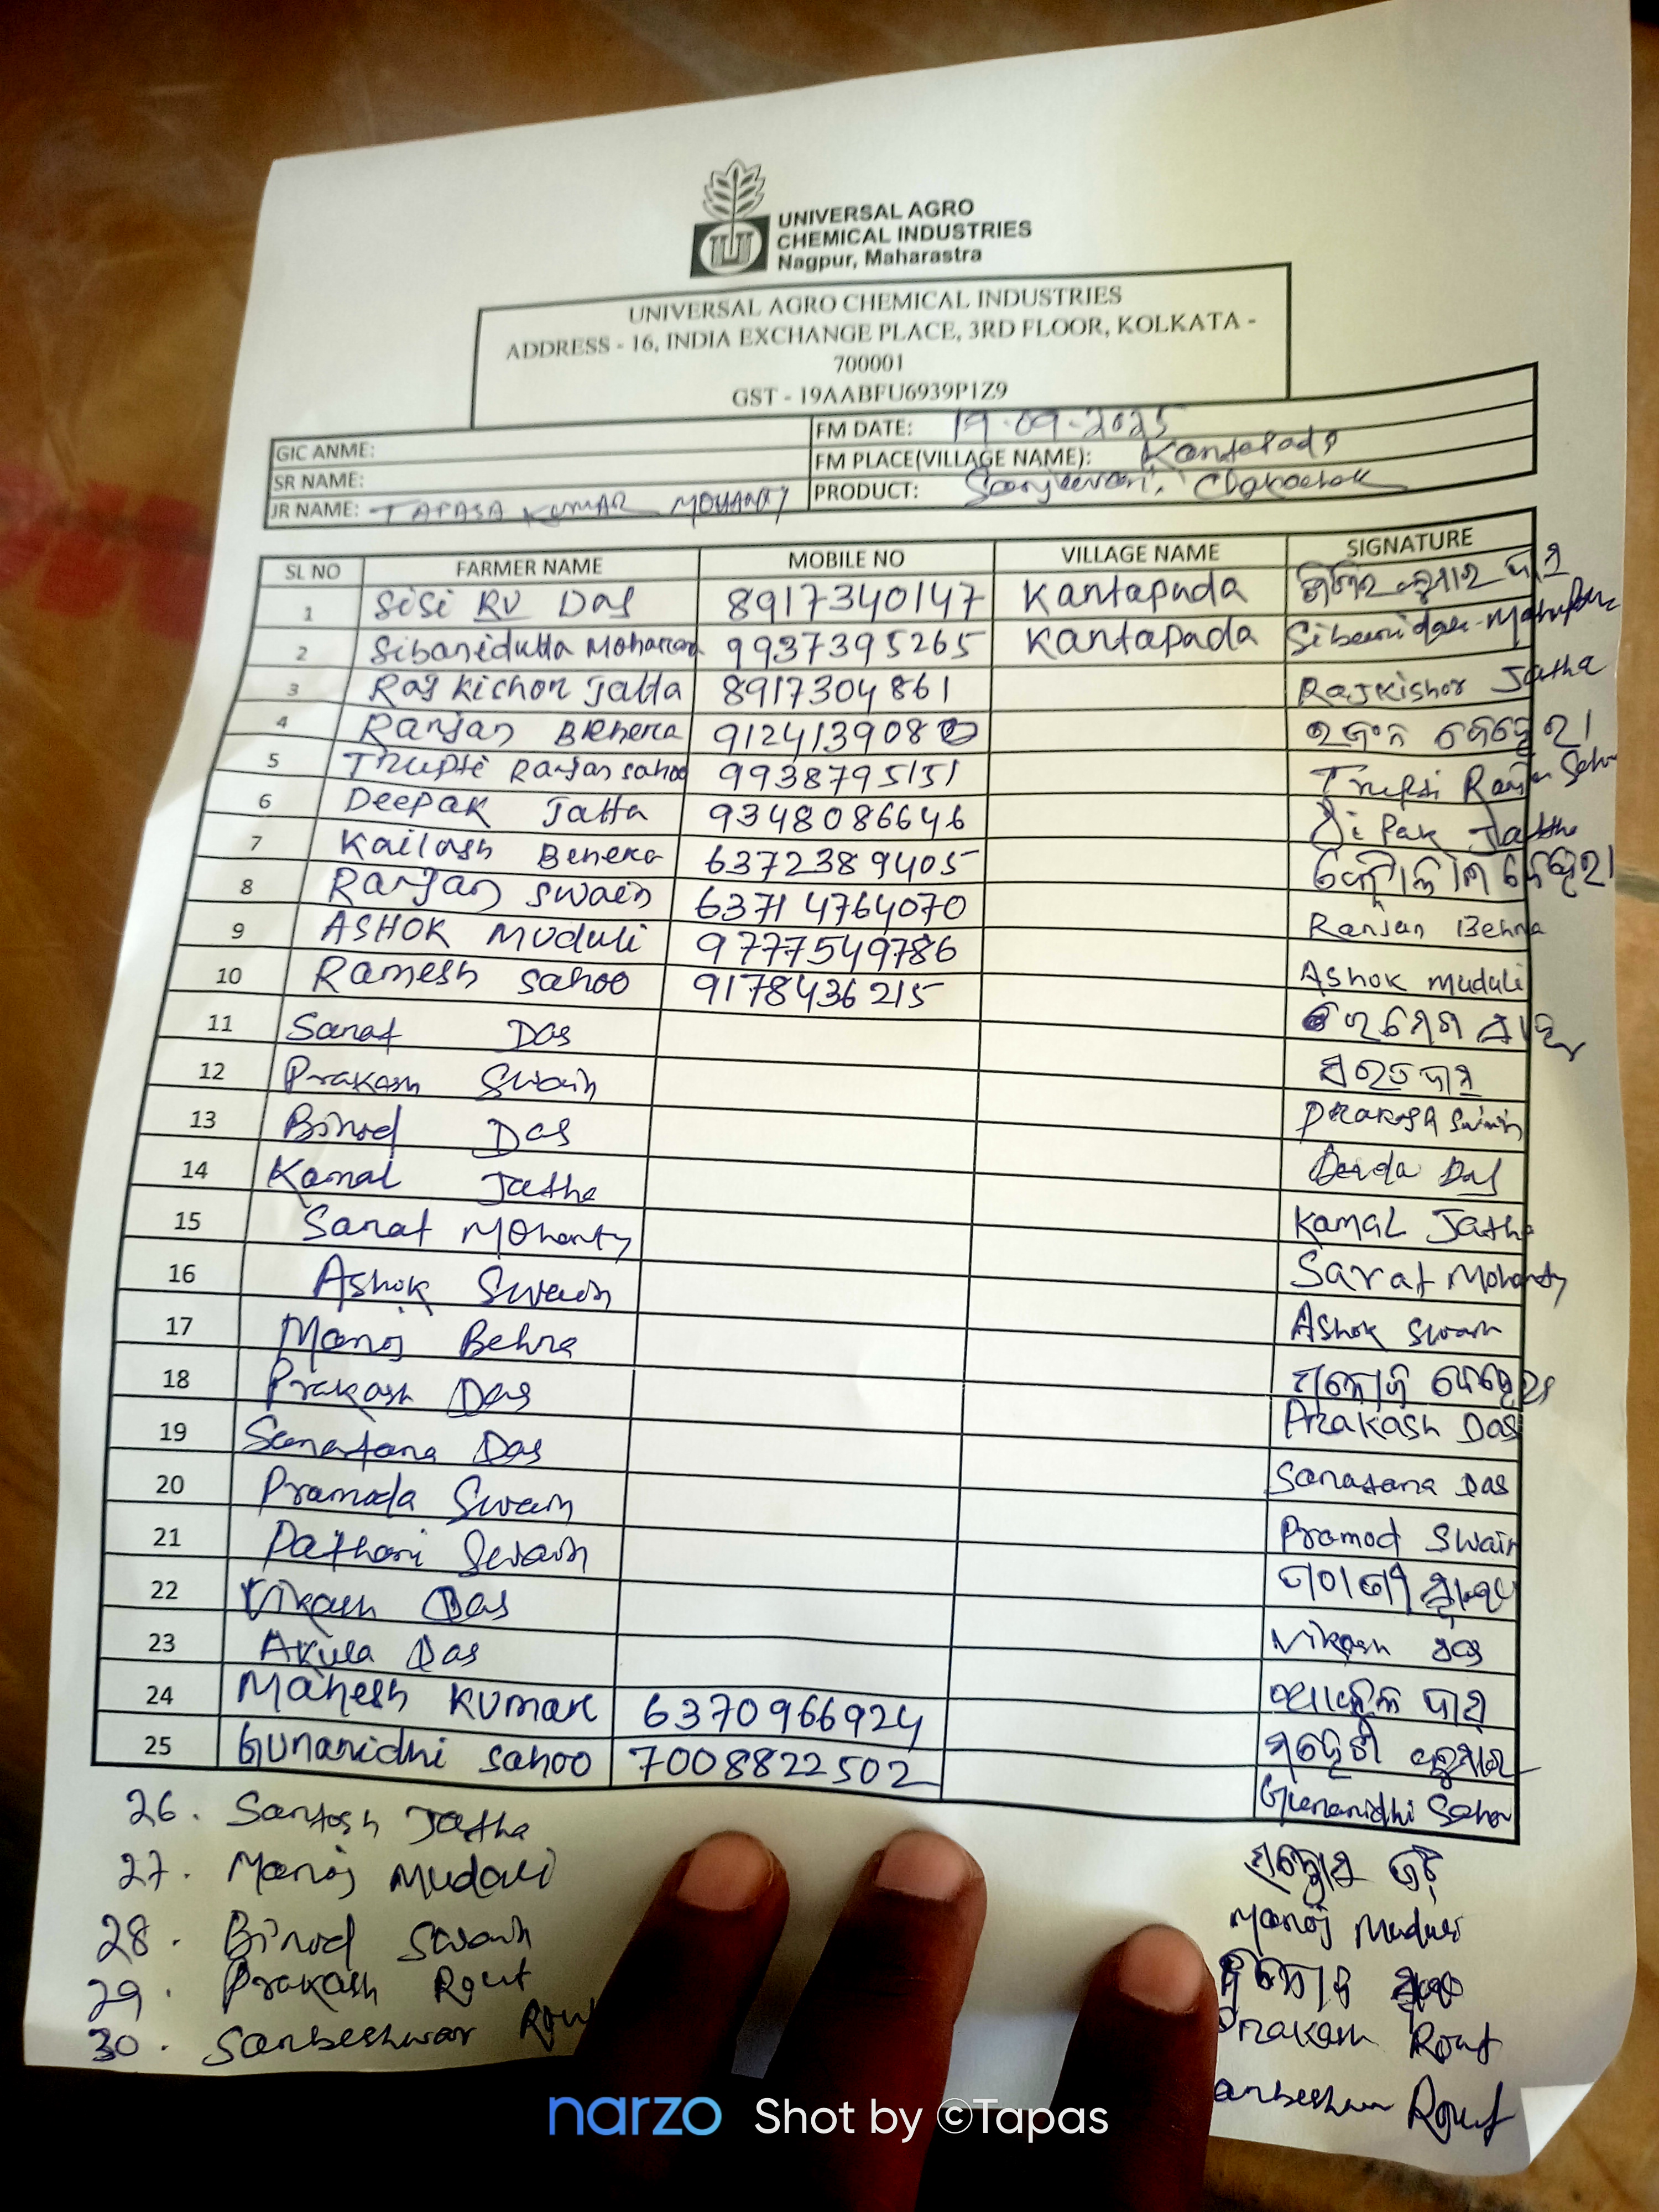 UNIVERSAL AGRO
CHEMICAL INDUSTRIES
Nagpur, Maharastra
UNIVERSAL AGRO CHEMICAL INDUSTRIES
ADDRESS - 16, INDIA EXCHANGE PLACE, 3RD FLOOR, KOLKATA -
700001
GST - 19AABFU6939P1Z9
GIC ANME: FM DATE: 19-09-2025
SR NAME: FM PLACE(VILLAGE NAME): Kantapada
JR NAME: TAPASA KUMAR MOHANTY PRODUCT: Sanjeevani,
SL NO FARMER NAME MOBILE NO VILLAGE NAME SIGNATURE
1 SiSi RU Das 8917340147 Kantapada ଶିଶିର କୁମାର ଦାସ
2 Sibanidutta 9937395265 Kantapada
3 Raj Kichor Jatta 8917304861 Rajkishor Jatha
4 Ranjan Behera 912413908 ରଞ୍ଜନ ବେହେରା
5 Trupti Ranjan sahoo 9938795151 Trupti Ranjan Sahoo
6 Deepak Jatta 9348086646 Dipak Jattha
7 Kailash Behera 6372389405 ବେହେରା
8 Ranjan Swain 63714764070 Ranjan Behra
9 ASHOK Muduli 9777549786 Ashok muduli
10 Ramesh sahoo 9178436215 ରମେଶ ସାହୁ
11 Sarat Das ଶରତ ଦାସ
12 Prakash Swain Prakash Swain
13 Binod Das Das
14 Kamal Jatha Kamal Jatha
15 Sarat Mohanty Sarat Mohanty
16 Ashok Swain Ashok Swain
17 Manoj Behra ମନୋଜ ବେହେରା
18 Prakash Das Prakash Das
19 Sanatana Das Sanatana Das
20 Pramoda Swain Pramod Swain
21 Pathani Swain
22 Vikash Das Vikash Das
23 Akula Das ଦାସ
24 Mahesh Kumar 6370966924 ମହେଶ କୁମାର
25 Gunanidhi sahoo 7008822502 Gunanidhi Sahoo
26. Santosh Jatha
27. Manoj Mudali Manoj Muduli
28. Binod Swain
29. Prakash Rout Prakash Rout
30. Sarbeshwar Rout arbeshwar Rout
narzo Shot by ©Tapas